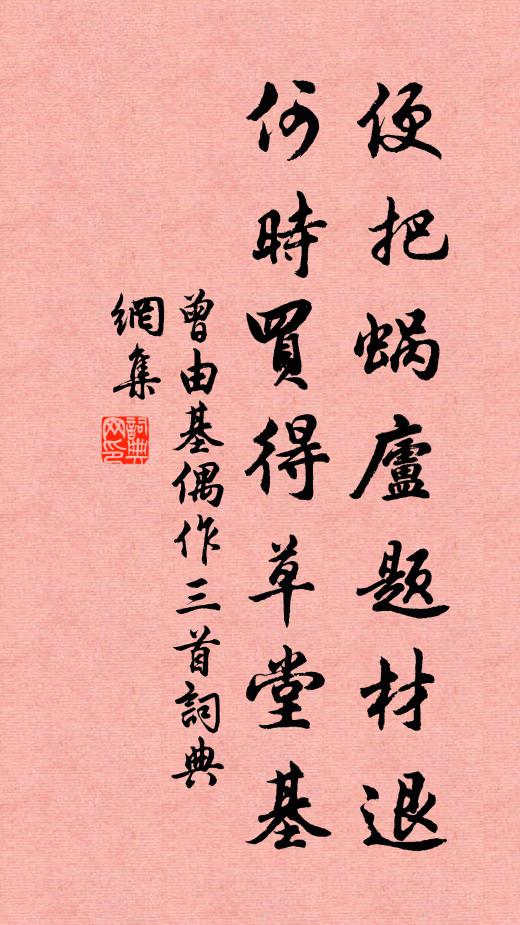 便把蜗廬题材退
何時買得草堂基
曾由基偶作三首詞典
網集
詞典
网印